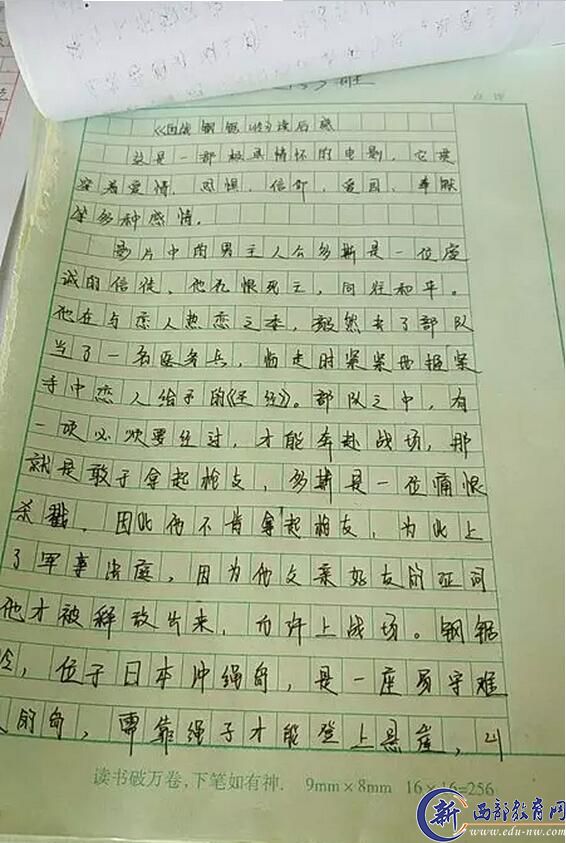 点评
《血战钢锯岭》读后感
这是一部极具情怀的电影，它贯
穿着爱情、恐惧，信仰，爱国，奉献
等多种感情。
影片中的男主人公多斯是一位虔
诚的信徒，他仇恨死亡，向往和平。
他在与恋人热恋之季，毅然去了部队
当了一名医务兵，临走时紧紧
手中恋人给予的《圣经》。部队之中，有
一项必须要经过，才能奔赴战场，那
就是敢于拿起枪支，多斯是一位痛恨
杀戮，因此他不肯拿起枪支，为此上
了军事法庭，因为他父亲好友的证词
他才被释放出来，允许上战场。钢锯
位于日本冲绳岛，是一座易守难
的岛，需靠绳子才能登上悬崖，
读书破万卷,下笔如有神. 9mm×8mm 16×16=256
新 西部教育网
www.edu-nw.com